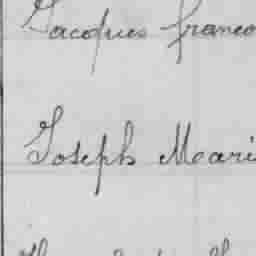 Jacques franco
Joseph Mari